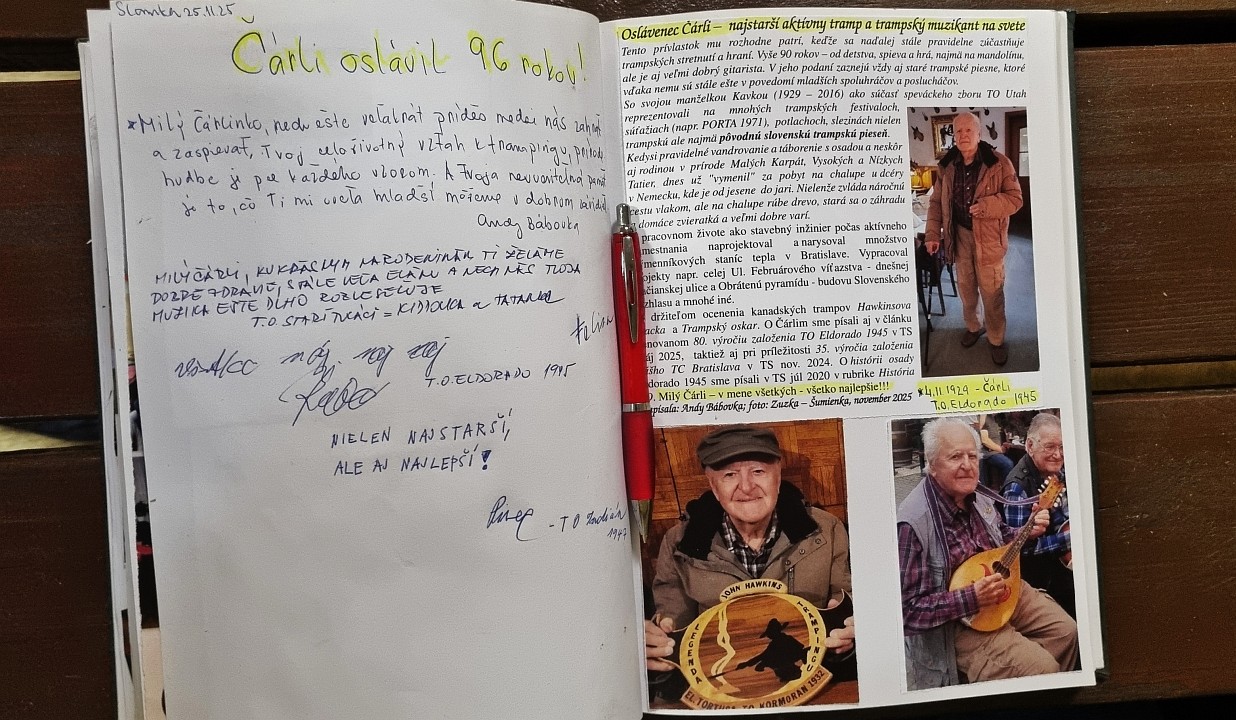 Slomka 25.11.25
Čárli oslávil 96 rokov!
Milý Čárlinko, nech ešte veľakrát prídeš medzi nás zahrať
a zaspievať, Tvoj celoživotný vzťah k trampingu, prírode
hudbe je pre každého vzorom. A Tvoja neuveriteľná pamäť
je to, čo Ti mi oveľa mladší môžeme v dobrom závidieť
Andy Bábovka
MILÝ ČÁRLI, KU KRÁSNYM NARODENINÁM TI ŽELÁME
DOBRÉ ZDRAVIE, STÁLE VEĽA ELÁNU A NECH NÁS TVOJA
MUZIKA EŠTE DLHO ROZVESEĽUJE
T.O. STARÍ TULÁCI = KIDJOVKA a TATANKA
T.O. ELDORADO 1945
NIELEN NAJSTARŠÍ,
ALE AJ NAJLEPŠÍ!
- TO Indián
1947
Oslávenec Čárli – najstarší aktívny tramp a trampský muzikant na svete
Tento prívlastok mu rozhodne patrí, keďže sa naďalej stále pravidelne zúčastňuje
trampských stretnutí a hraní. Vyše 90 rokov – od detstva, spieva a hrá, najmä na mandolínu,
ale je aj veľmi dobrý gitarista. V jeho podaní zaznejú vždy aj staré trampské piesne, ktoré
vďaka nemu sú stále ešte v povedomí mladších spoluhráčov a poslucháčov.
So svojou manželkou Kavkou (1929 – 2016) ako súčasť speváckeho zboru TO Utah
reprezentovali na mnohých trampských festivaloch,
súťažiach (napr. PORTA 1971), potlachoch, slezinách nielen
trampskú ale najmä pôvodnú slovenskú trampskú pieseň.
Kedysi pravidelné vandrovanie a táborenie s osadou a neskôr
aj rodinou v prírode Malých Karpát, Vysokých a Nízkych
Tatier, dnes už "vymenil" za pobyt na chalupe u dcéry
v Nemecku, kde je od jesene do jari. Nielenže zvláda náročnú
cestu vlakom, ale na chalupe rúbe drevo, stará sa o záhradu
domáce zvieratká a veľmi dobre varí.
pracovnom živote ako stavebný inžinier počas aktívneho
mestnania naprojektoval a narysoval množstvo
menníkových staníc tepla v Bratislave. Vypracoval
ojekty napr. celej Ul. Februárového víťazstva - dnešnej
čianskej ulice a Obrátenú pyramídu - budovu Slovenského
zhlasu a mnohé iné.
držiteľom ocenenia kanadských trampov Hawkinsova
acka a Trampský oskar. O Čárlim sme písali aj v článku
novanom 80. výročiu založenia TO Eldorado 1945 v TS
áj 2025, taktiež aj pri príležitosti 35. výročia založenia
išho TC Bratislava v TS nov. 2024. O histórii osady
dorado 1945 sme písali v TS júl 2020 v rubrike História
O. Milý Čárli – v mene všetkých - všetko najlepšie!!!
písala: Andy Bábovka; foto: Zuzka – Šumienka, november 2025
*4.11.1929 - Čárli
T.O. Eldorado 1945
JOHN HAWKINS
LEGENDA
TRAMPINGU
EL TORTUGA TO KORMORAN 1932